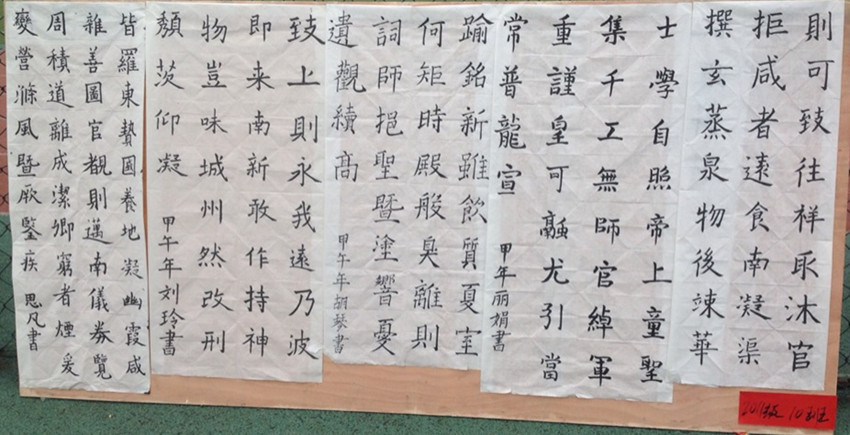 則可致往祥承沐官
拒咸者遠食南凝渠
撰玄蒸泉物後竦華
士學自照帝上童聖
集千工無師官綽軍
重謹皇可融尤引當
常普龍宣
甲年丽娟書
踰銘新雖飲質夏室
何矩時殿般臭離則
詞師挹聖暨塗響憂
遺觀續高
甲午年胡琴書
致上則永我遠乃波
即来南新敢作持神
物豈味城州然改刑
頹茨仰凝
甲午年刘玲書
皆羅東贄圓養地凝幽霞咸
雜善圖官觀則邁南儀券覽
周積道離成潔卿窮者煙爰
變營滌風暨厥鑒疾
思凡書
10班